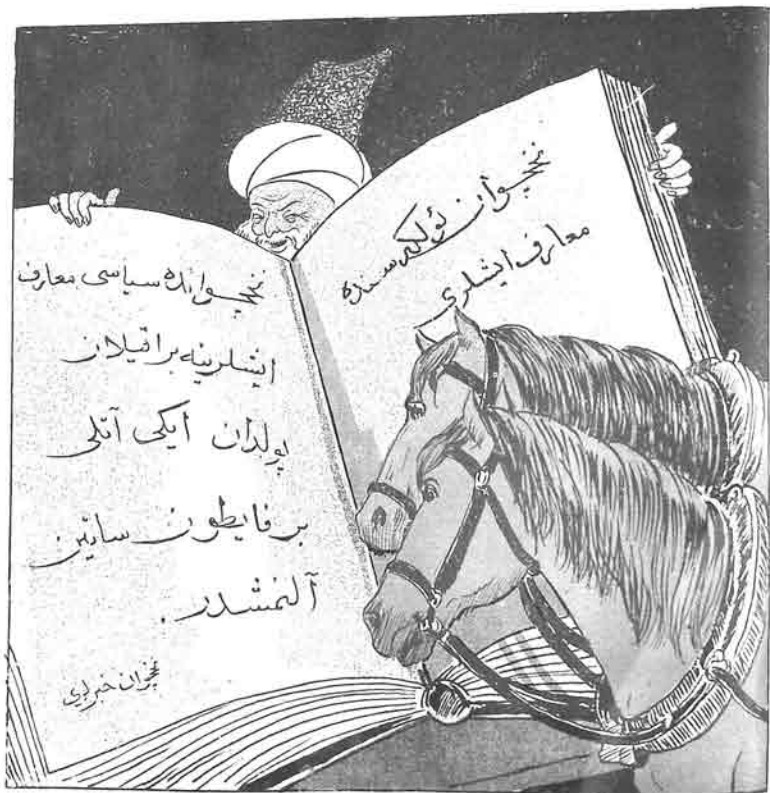 نخچوان ئولکه‌سنده
معارف ایشلری
نخچوانده سیاسی معارف
ایشلرینه براقیلان
پولدان ایکی آتلی
بر فایطون ساتین
آلنمشدر.
نخچوان خبرلری